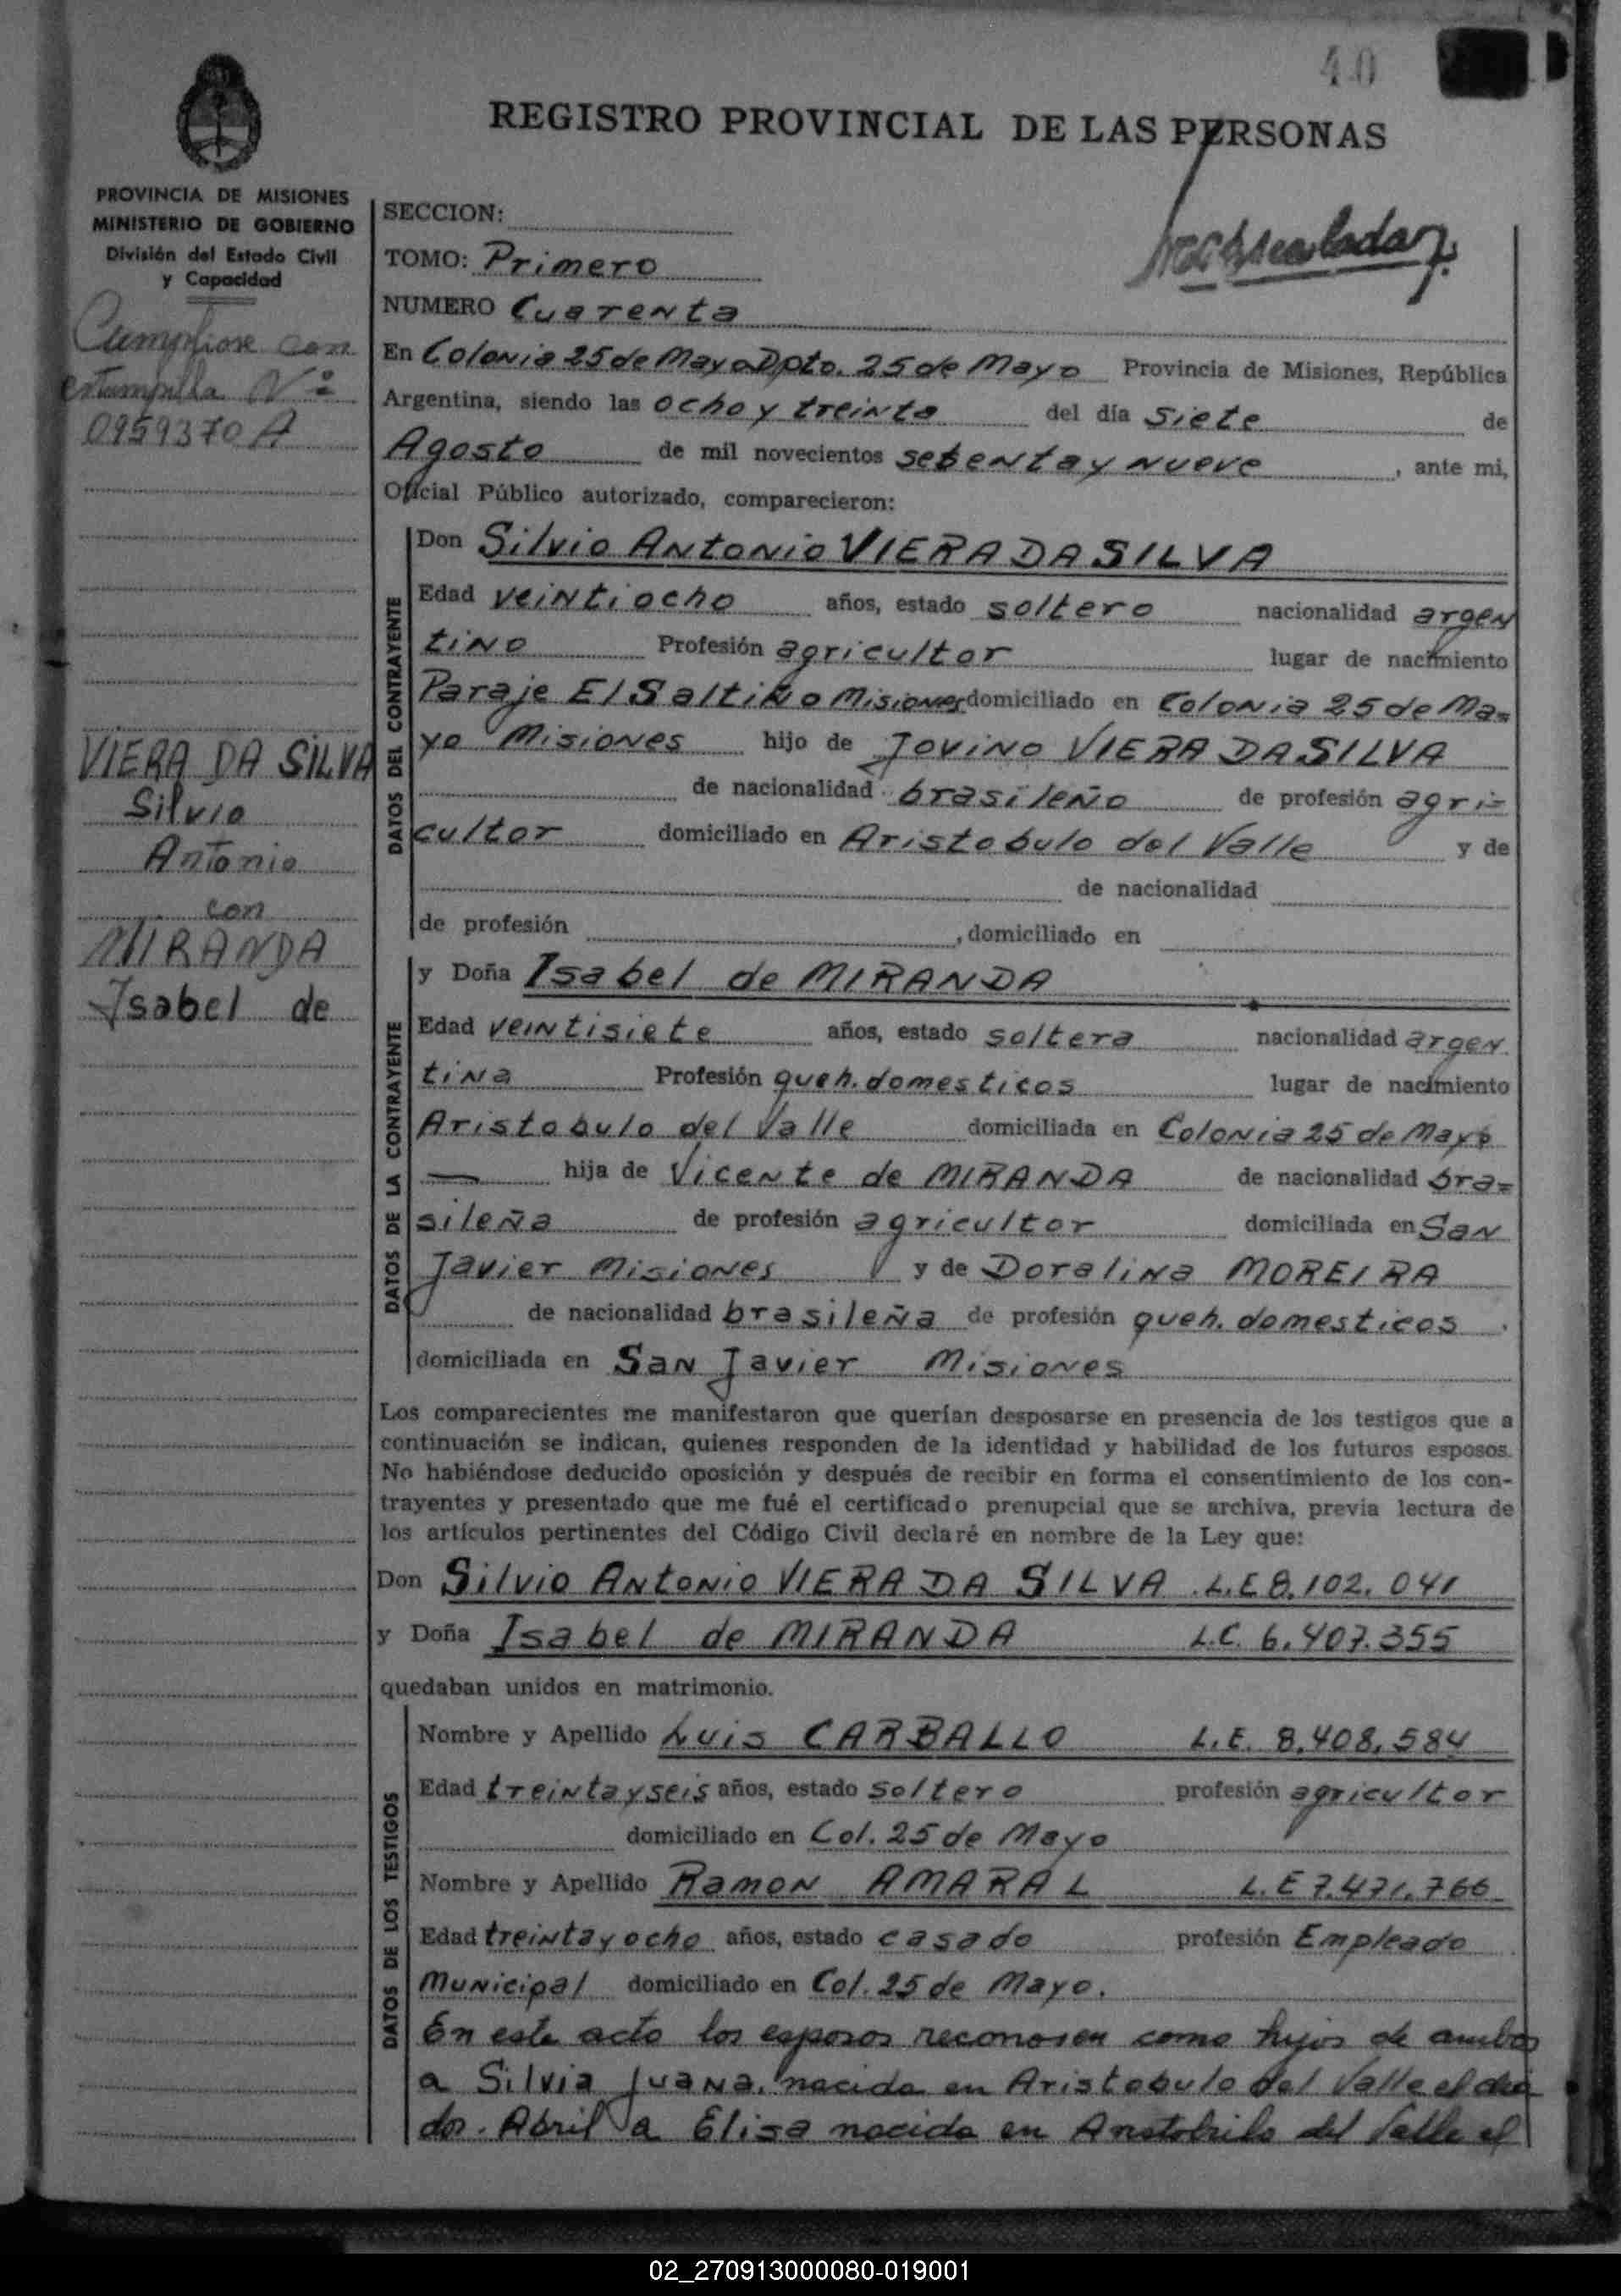 40
REGISTRO PROVINCIAL DE LAS PERSONAS
PROVINCIA DE MISIONES
MINISTERIO DE GOBIERNO
División del Estado Civil
y Capacidad
Cumpliose con
estampilla Nº
0959370 A
VIERA DA SILVA
Silvio
Antonio
con
MIRANDA
Isabel de
SECCION:
TOMO: Primero
NUMERO Cuarenta
En Colonia 25 de Mayo Dpto. 25 de Mayo Provincia de Misiones, República
Argentina, siendo las ocho y treinta del día siete de
Agosto de mil novecientos setenta y nueve, ante mi,
Oficial Público autorizado, comparecieron:
DATOS DEL CONTRAYENTE
Don Silvio Antonio VIERA DA SILVA
Edad veintiocho años, estado soltero nacionalidad argen
tino Profesión agricultor lugar de nacimiento
Paraje El Saltiño Misiones domiciliado en Colonia 25 de Ma=
yo Misiones hijo de Jovino VIERA DA SILVA
de nacionalidad brasileño de profesión agri=
cultor domiciliado en Aristobulo del Valle y de
de nacionalidad
de profesión , domiciliado en
DATOS DE LA CONTRAYENTE
y Doña Isabel de MIRANDA
Edad veintisiete años, estado soltera nacionalidad argen
tina Profesión queh. domesticos lugar de nacimiento
Aristobulo del Valle domiciliada en Colonia 25 de Mayo
— hija de Vicente de MIRANDA de nacionalidad bra=
sileña de profesión agricultor domiciliada en San
Javier Misiones y de Doralina MOREIRA
de nacionalidad brasileña de profesión queh. domesticos
domiciliada en San Javier Misiones
Los comparecientes me manifestaron que querían desposarse en presencia de los testigos que a
continuación se indican, quienes responden de la identidad y habilidad de los futuros esposos.
No habiéndose deducido oposición y después de recibir en forma el consentimiento de los con-
trayentes y presentado que me fué el certificado prenupcial que se archiva, previa lectura de
los artículos pertinentes del Código Civil declaré en nombre de la Ley que:
Don Silvio Antonio VIERA DA SILVA L.E 8.102.041
y Doña Isabel de MIRANDA L.C. 6.407.355
quedaban unidos en matrimonio.
DATOS DE LOS TESTIGOS
Nombre y Apellido Luis CARBALLO L.E. 8.408.584
Edad treinta y seis años, estado soltero profesión agricultor
domiciliado en Col. 25 de Mayo
Nombre y Apellido Ramon AMARAL L.E 7.471.766
Edad treinta y ocho años, estado casado profesión Empleado
Municipal domiciliado en Col. 25 de Mayo.
En este acto los esposos reconosen como hijos de ambos
a Silvia Juana, nacida en Aristobulo del Valle el dia
dos. Abril a Elisa nacida en Aristobulo del Valle el
02_270913000080-019001